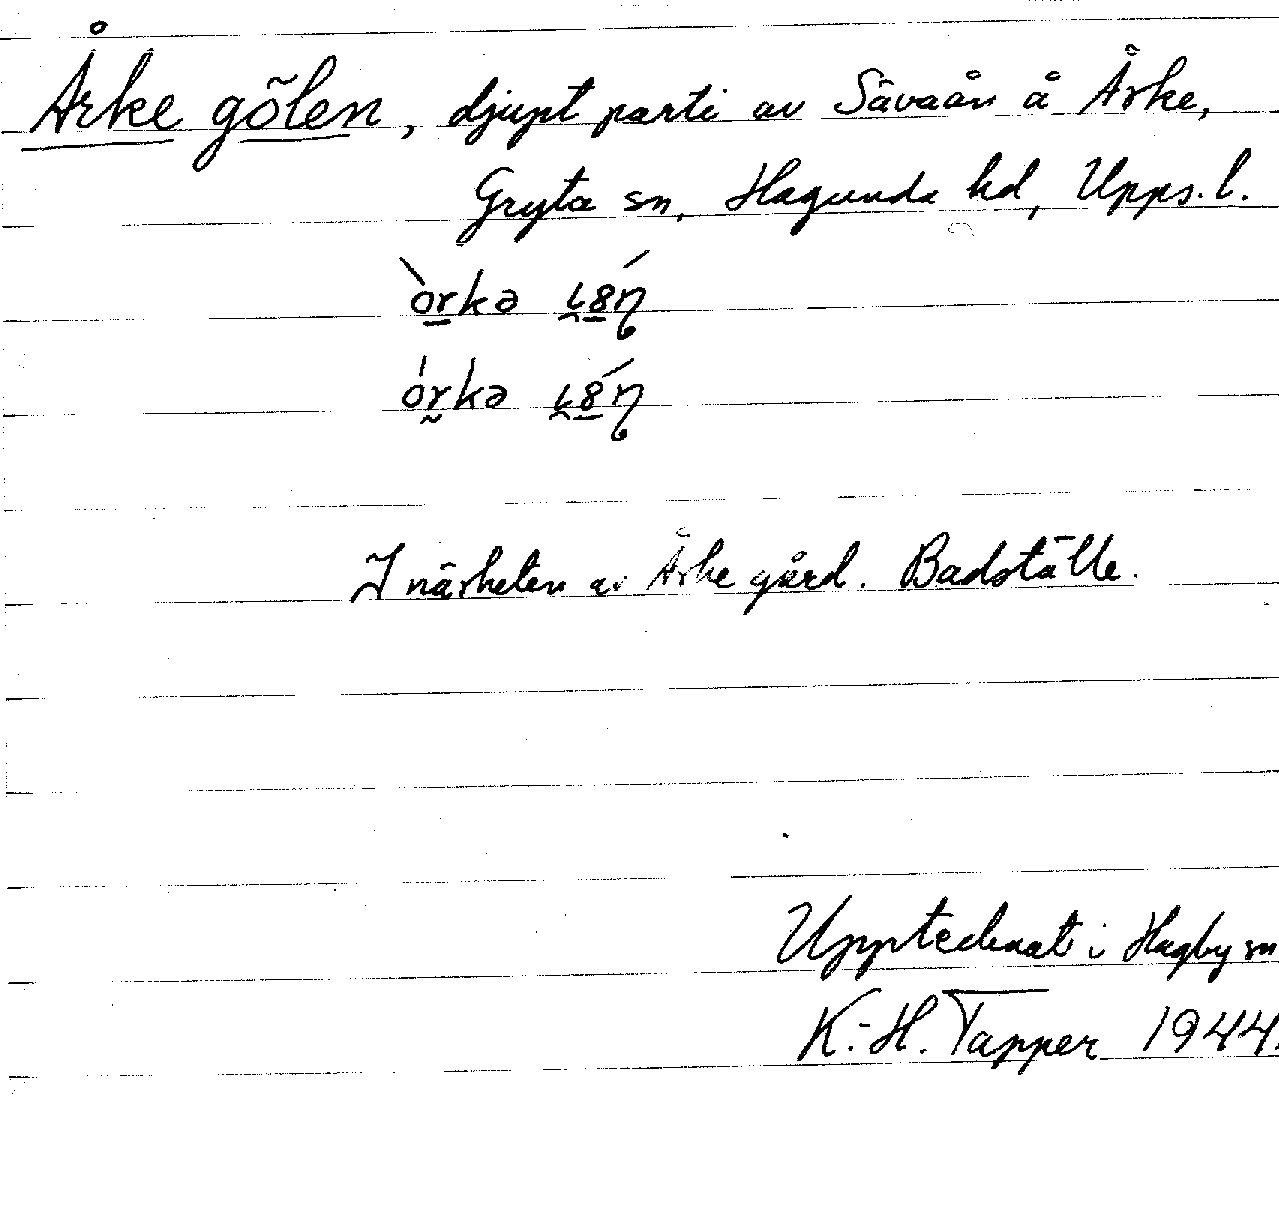 Årke gölen, djupt parti av Sävaån å Årke,
Gryta sn, Hagunda hd, Upps. l.
òrkə
órkə
I närheten av Årke gård. Badställe.
Upptecknat i Hagby sn
K.-H. Tapper 1944.